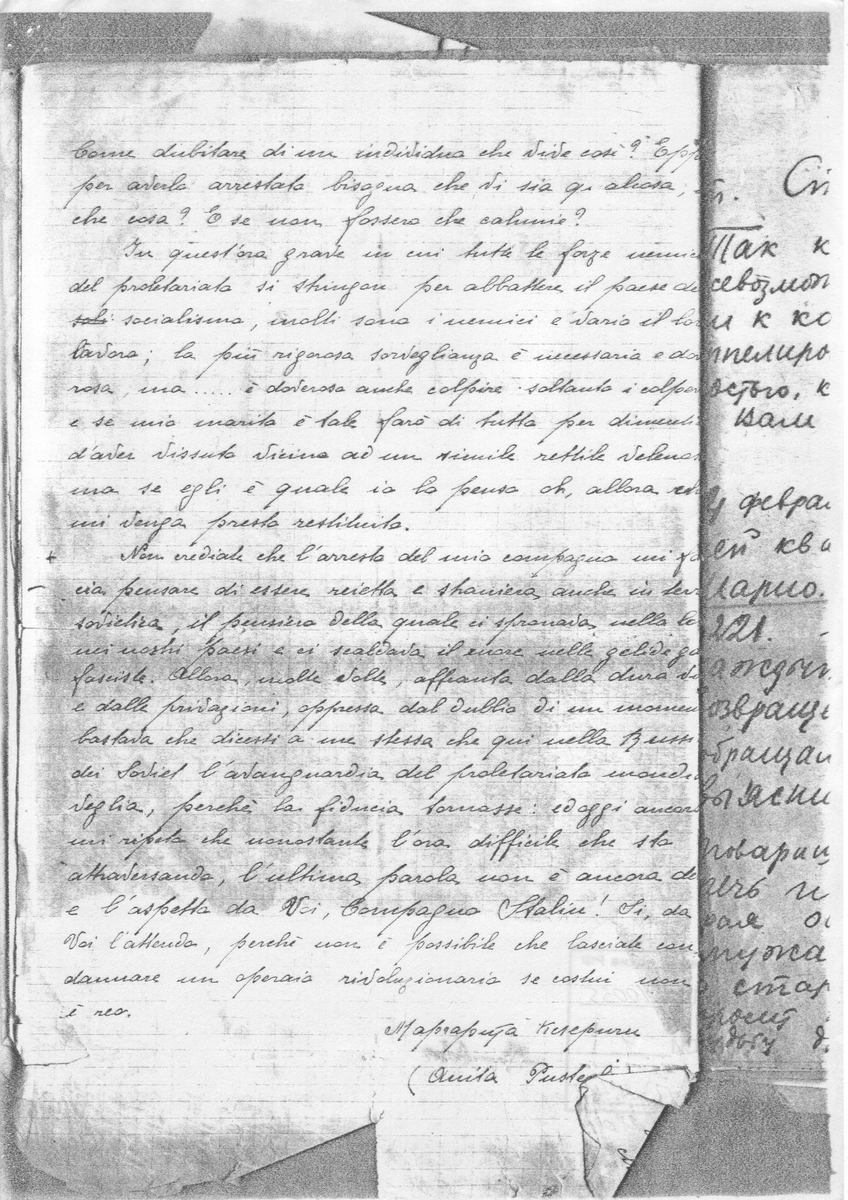 Come dubitare di un individuo che vive così? Epp
per averlo arrestato bisogna che vi sia qualcosa,
che cosa? E se non fossero che calunie?
In quest'ora grave in cui tutte le forze nemic
del proletariato si stringon per abbattere il paese de
socialismo, molti sono i nemici e vario il lo
lavoro; la più rigorosa sorveglianza è necessaria e do
rosa, ma ..... è doveroso anche colpire soltanto i colpe
e se mio marito è tale farò di tutto per dimenti
d'aver vissuto vicino ad un simile rettile velenos
ma se egli è quale io lo penso oh, allora
mi venga presto restituito.
Non crediate che l'arresto del mio compagno mi fa
cia pensare di essere reietta e straniera anche in terr
sovietica, il pensiero della quale ci spronava nella lo
nei nostri paesi e ci scaldava il cuore nelle gelide ga
fasciste. Allora, molte volte, affranta dalla dura vi
e dalle privazioni, oppressa dal dubbio di un momen
bastava che dicessi a me stessa che qui nella Russi
dei Soviet l'avanguardia del proletariato mondi
veglia, perchè la fiducia tornasse: ed oggi ancora
mi ripeto che nonostante l'ora difficile che sto
attraversando, l'ultima parola non è ancora de
e l'aspetto da Voi, Compagno Stalin! Si, da
Voi l'attendo, perchè non è possibile che lasciate con
dannare un operaio rivoluzionario se costui non
è reo.
Маргарита
(Anita Puste
Сп
Так к
евозмож
и к ко
пелиро
остью, к
Вам
февра
ей ква
Марио.
221.
аждый
озвраще
обращал
выясни
товарищ
ечь и
рая
мужа
стар